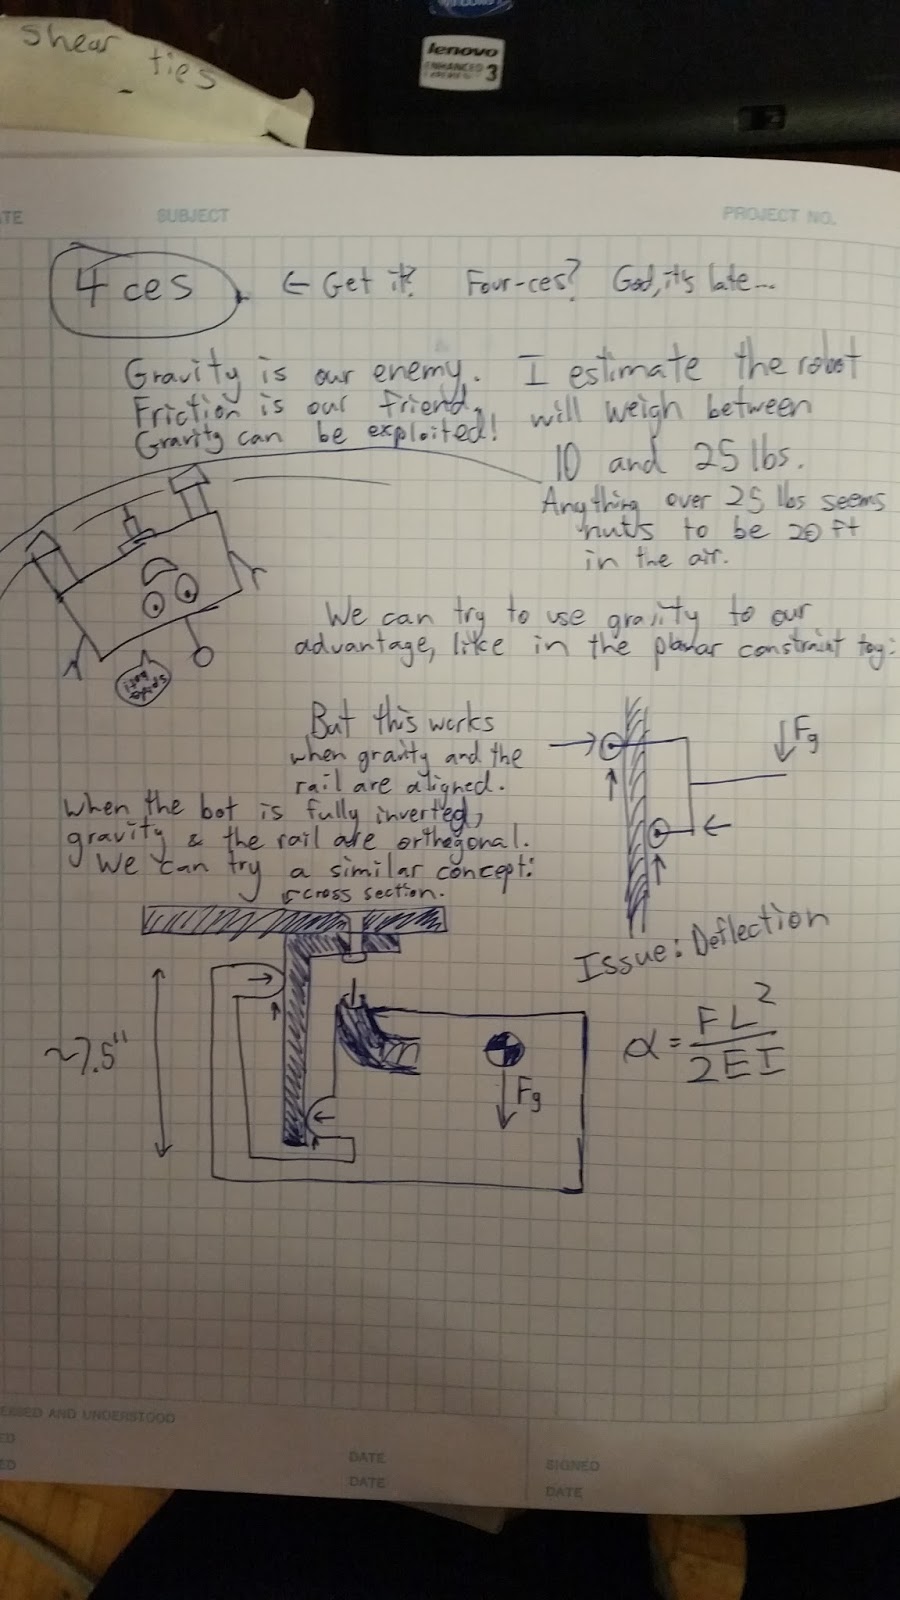 shear
ties
Windows
lenovo
ENHANCED
EXPERIENCE 3
ATE
SUBJECT
PROJECT NO.
4 ces ← Get it? Four-ces? God, it's late...
Gravity is our enemy.
Friction is our friend.
Gravity can be exploited!
I estimate the robot
will weigh between
10 and 25 lbs.
Anything over 25 lbs seems
nuts to be 20 ft
in the air.
We can try to use gravity to our
advantage, like in the planar constraint toy:
But this works
when gravity and the
rail are aligned.
Fg
When the bot is fully inverted,
gravity & the rail are orthogonal.
We can try a similar concept:
cross section.
Issue: Deflection
α = FL²/2EI
~7.5"
Fg
ESSED AND UNDERSTOOD
ED
ED
DATE
DATE
SIGNED
DATE